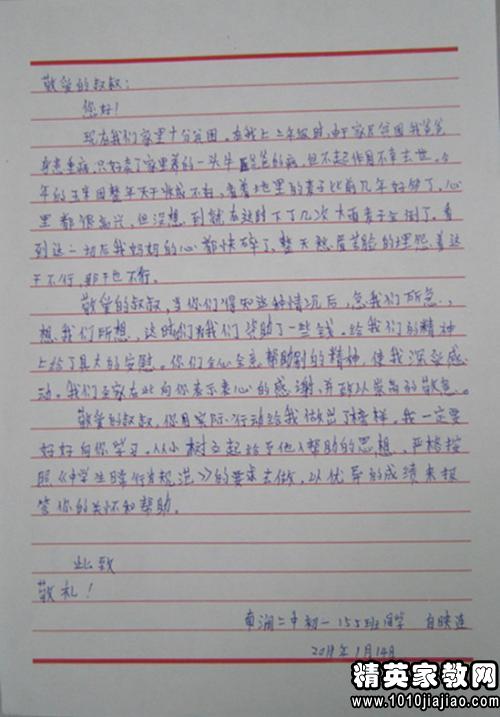 敬爱的叔叔:
您好!
现在我们家里十分贫困。在我上二年级时,由于家庭贫困我爸爸
身患重病,只好卖了家里养的一头牛 爸爸的病,但不起作用不幸去世。今
年的玉米因整年天干收成不好,看着地里的麦子比前几年好够了,心
里都很高兴,但没想到就在这时下了几次大雨麦子全倒了。看
到这一切后我妈妈的心都快碎了,整天愁眉苦脸的埋怨着这
干不行,那干也不行。
敬爱的叔叔,当你们得知这种情况后,急我们所急,
想我们所想,这时们为我们资助了一些钱。给我们的精神
上给了巨大的安慰。你们全心全意帮助别的精神,使我深受感
动。我们全家在此向你表示衷心的感谢,并致以崇高的敬意。
敬爱的叔叔,你用实际行动给我做出了榜样。我一定要
好好向你学习,从小树立起给予他人帮助的思想,严格按
照《中学生日常行为规范》的要求去做,以优异的成绩来报
答你的关怀和帮助。
此致
敬礼!
南涧二中初一155班同学 自映连
2011年1月14日
精英家教网
www.1010jiajiao.com